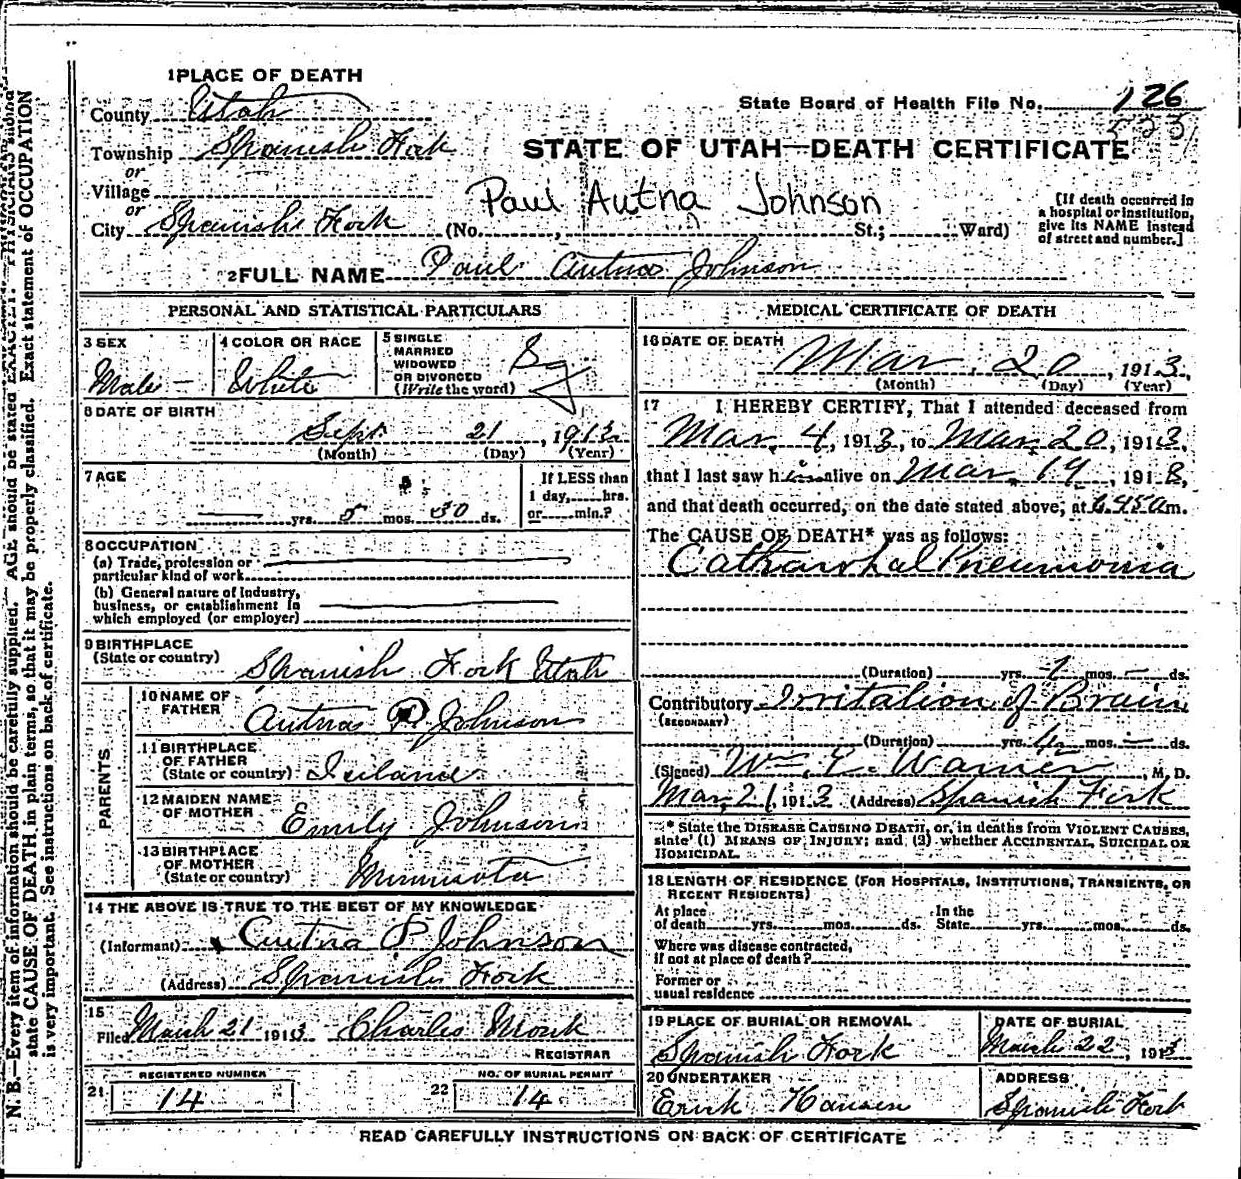 1 PLACE OF DEATH
County Utah
State Board of Health File No. 126
Township Spanish Fork
STATE OF UTAH—DEATH CERTIFICATE
or
Village
Paul Autna Johnson
or
City Spanish Fork (No. , St.; Ward)
[If death occurred in a hospital or institution, give its NAME instead of street and number.]
2 FULL NAME Paul Autna Johnson
PERSONAL AND STATISTICAL PARTICULARS
3 SEX
Male
4 COLOR OR RACE
White
5 SINGLE
MARRIED
WIDOWED
OR DIVORCED
(Write the word)
6 DATE OF BIRTH
Sept. 21, 1912
(Month) (Day) (Year)
7 AGE
yrs. 5 mos. 30 ds.
If LESS than
1 day, hrs.
or min.?
8 OCCUPATION
(a) Trade, profession or
particular kind of work
(b) General nature of Industry,
business, or establishment in
which employed (or employer)
9 BIRTHPLACE
(State or country) Spanish Fork Utah
PARENTS
10 NAME OF
FATHER
Autna P Johnson
11 BIRTHPLACE
OF FATHER
(State or country) Iceland
12 MAIDEN NAME
OF MOTHER
Emily Johnson
13 BIRTHPLACE
OF MOTHER
(State or country) Minnisota
14 THE ABOVE IS TRUE TO THE BEST OF MY KNOWLEDGE
(Informant) x Autna P Johnson
(Address) Spanish Fork
15
Filed March 21 1913 Charles Monk
REGISTRAR
REGISTERED NUMBER
21 14
NO. OF BURIAL PERMIT
22 14
MEDICAL CERTIFICATE OF DEATH
16 DATE OF DEATH
Mar. 20, 1913,
(Month) (Day) (Year)
17 I HEREBY CERTIFY, That I attended deceased from
Mar. 4, 1913, to Mar. 20, 1913,
that I last saw him alive on Mar. 19, 1913,
and that death occurred, on the date stated above, at 6.45 a m.
The CAUSE OF DEATH* was as follows:
Catharrhal Pneumonia
(Duration) yrs. 1 mos. ds.
Contributory Irritation of Brain
(SECONDARY)
(Duration) yrs. mos. ds.
(Signed) Wm. E. Warner, M. D.
Mar. 21, 1913 (Address) Spanish Fork
* State the DISEASE CAUSING DEATH, or, in deaths from VIOLENT CAUSES,
state (1) MEANS OF INJURY; and (2) whether ACCIDENTAL, SUICIDAL OR
HOMICIDAL.
18 LENGTH OF RESIDENCE (FOR HOSPITALS, INSTITUTIONS, TRANSIENTS, OR
RECENT RESIDENTS)
At place
of death yrs. mos. ds.
In the
State yrs. mos. ds.
Where was disease contracted,
if not at place of death?
Former or
usual residence
19 PLACE OF BURIAL OR REMOVAL
Spanish Fork
DATE OF BURIAL
March 22, 1913
20 UNDERTAKER
Erick Hansen
ADDRESS
Spanish Fork
READ CAREFULLY INSTRUCTIONS ON BACK OF CERTIFICATE
N. B.—Every item of information should be carefully supplied. AGE should be stated EXACTLY. PHYSICIANS should
state CAUSE OF DEATH in plain terms, so that it may be properly classified. Exact statement of OCCUPATION
is very important. See instructions on back of certificate.